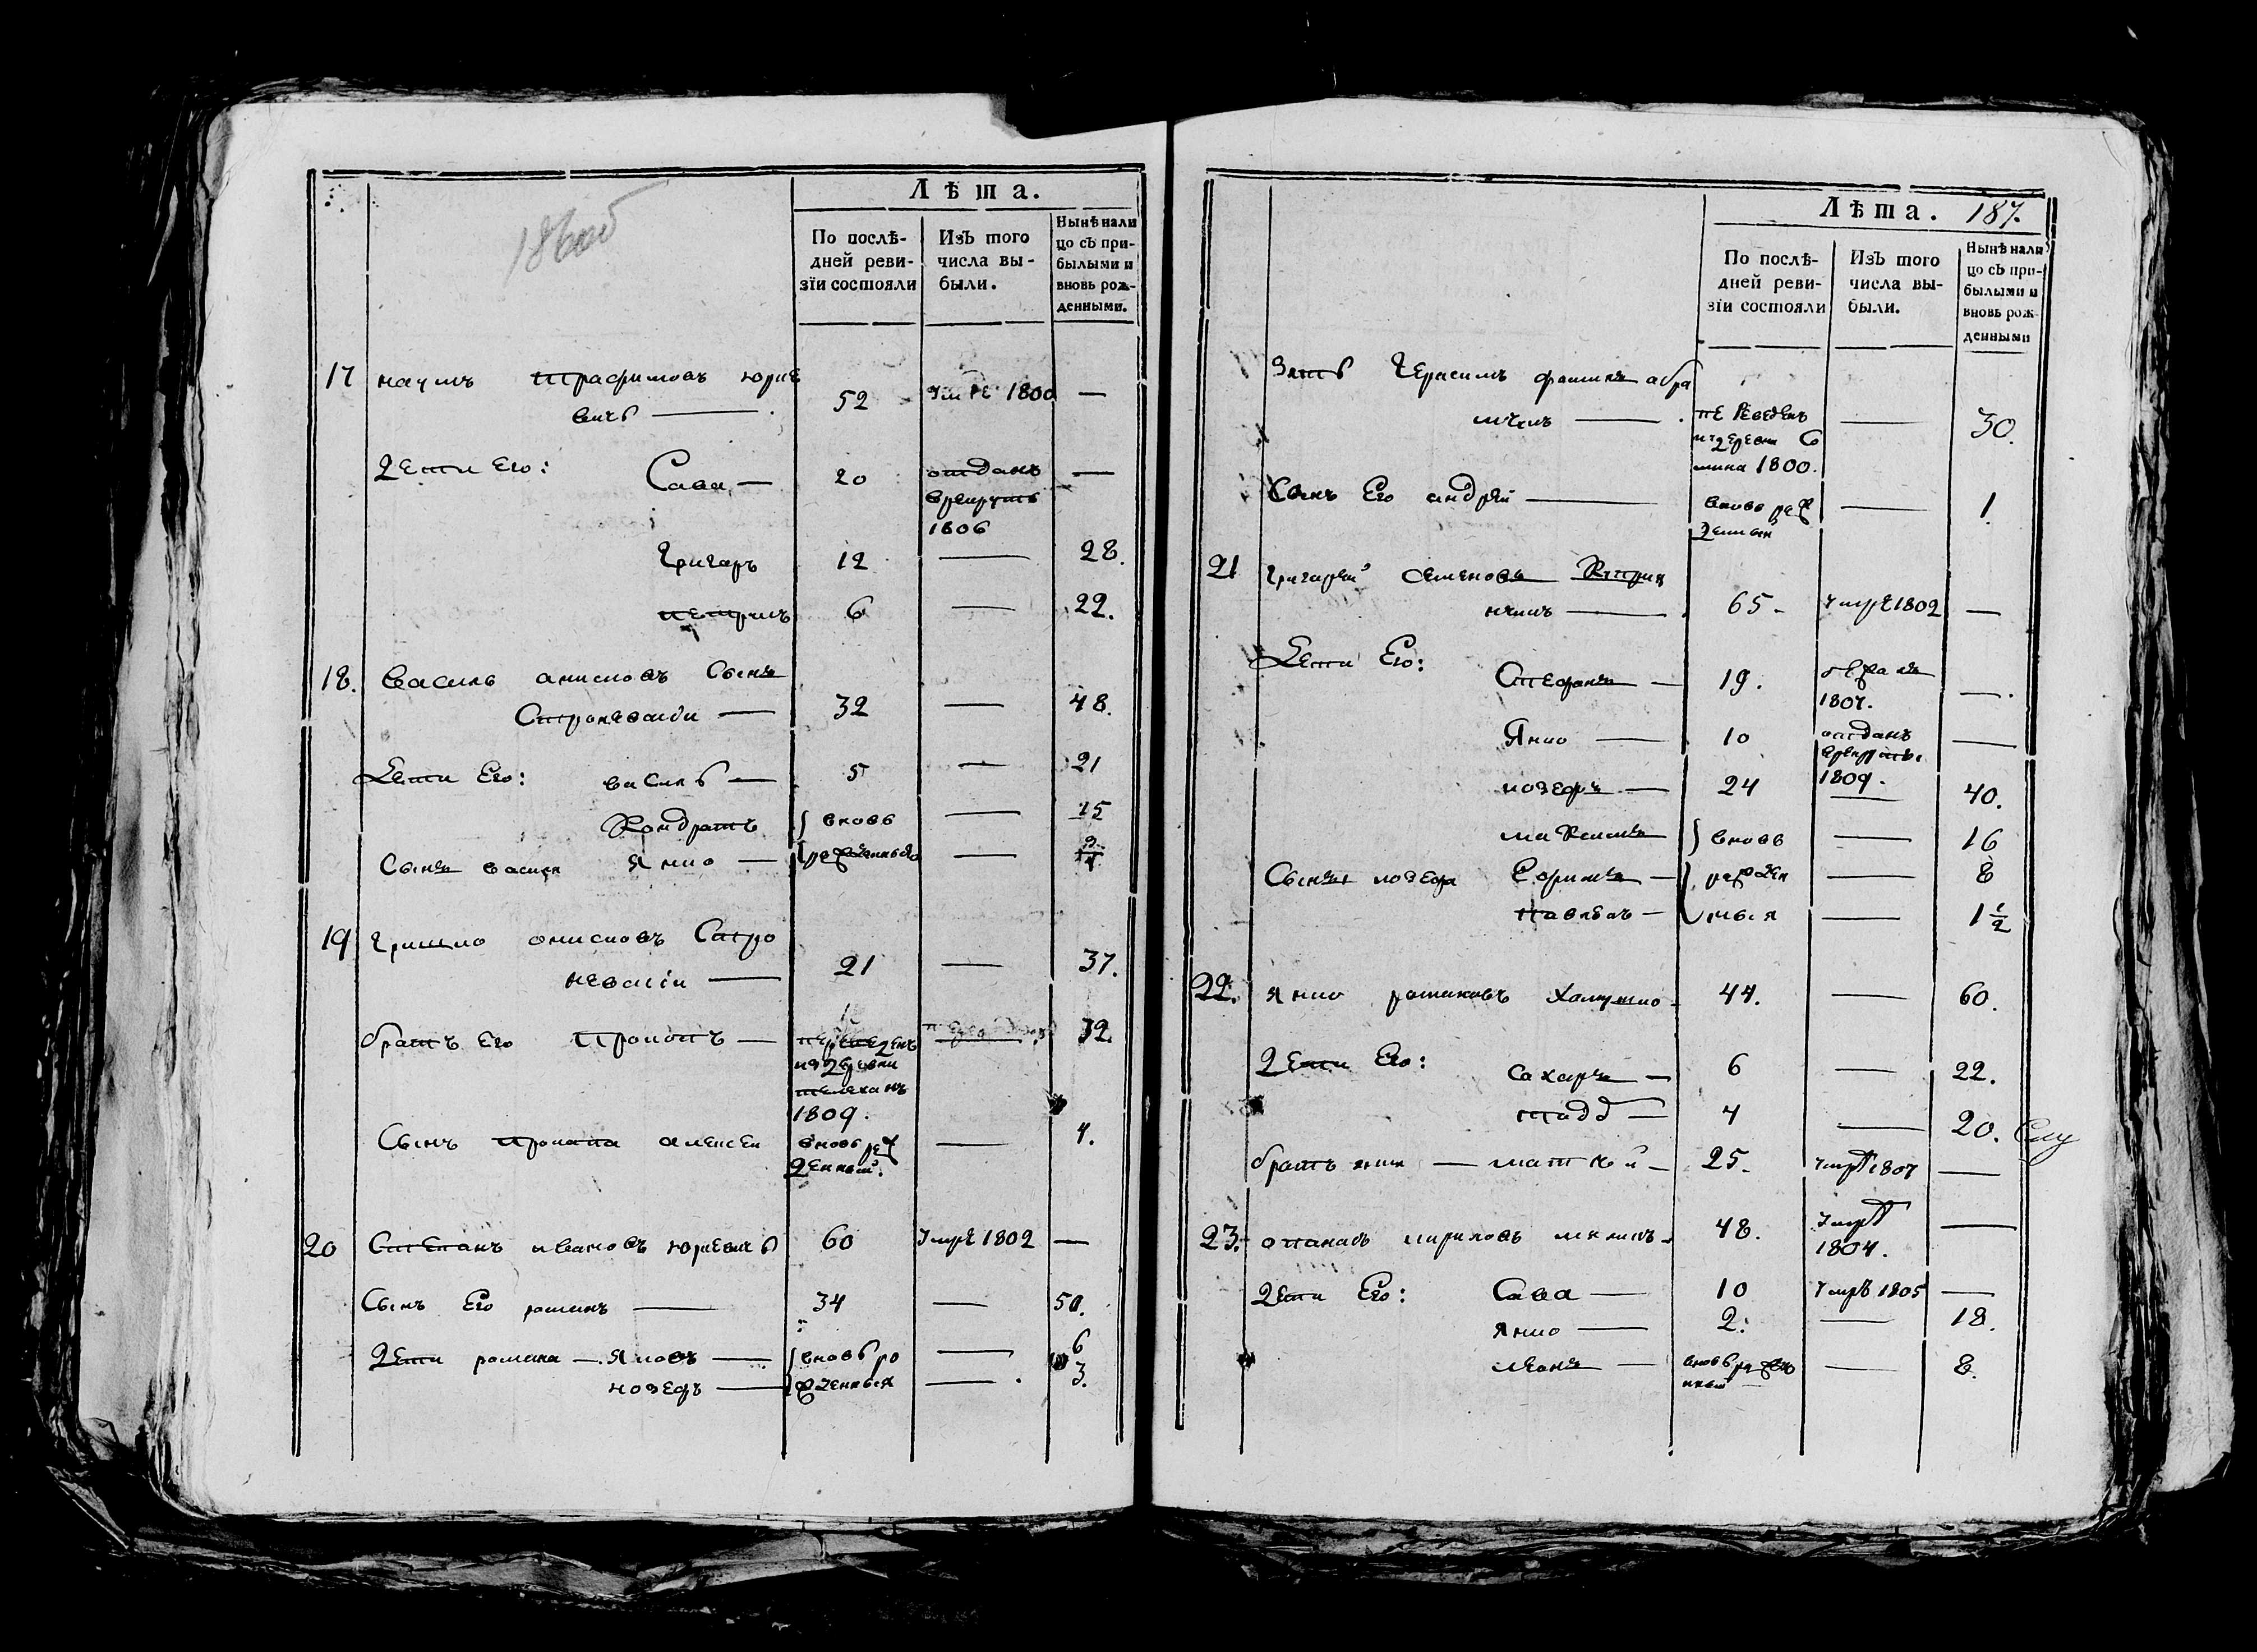 186 об
Лѣта.
По послѣ-
дней реви-
зїи состояли
Изъ того
числа вы-
были.
Нынѣ нали
цо съ при-
былыми и
вновь рож-
денными.
17 наумъ трафимовъ юрке
вичъ — 52 Умре 1800 —
Дети Его: Сава — 20 отданъ —
врекруты
1806
Григоръ 12 — 28.
петрикъ 6 — 22.
18. Василь анисковъ Сынъ
Строневскiи — 32 — 48.
Дети Его: василь — 5 — 21
Кондратъ вновь — 15
Сынъ васили Янко — рожденныя —
19 Гришко онисковъ Стро
невскiи — 21 — 37.
братъ Его Прокопъ — переведенъ 32.
из деревни
1809.
Сынъ прокопа алексеи вновь рож — 4.
денный.
20 Степанъ ивановъ юркевичъ 60 Умре 1802 —
Сынъ Его романъ — 34 — 50.
Дети романа — Яковъ — вновь ро — 6
иозефъ — жденныя — 3.
Лѣта. 187.
По послѣ-
дней реви-
зїи состояли
Изъ того
числа вы-
были.
Нынѣ нали
цо съ при-
былыми и
вновь рож-
денными
Зять Герасимъ фоминъ абра
мчикъ — переведенъ — 30.
из деревни
1800.
Сынъ Его андрей — вновь рож — 1.
денный
21 григорей семеновъ
— 65 — Умре 1802 —
Дети Его: Стефанъ — 19. бежалъ —
1807.
Янко — 10 отданъ —
врекруты.
1809.
иозефъ — 24 — 40.
максимъ вновь — 16
Сыны иозефа Ефимъ — рожден — 8
павелъ — ныя — 1 1/2
22. Янко романовъ — 44. — 60.
Дети Его: сахаръ — 6 — 22.
тадд — 4 — 20.
братъ янки — маткей — 25. Умре 1807 —
23. опанасъ кириловъ — 48. Умре —
1804.
Дети Его: Сава — 10 Умре 1805 —
Янко — 2. — 18.
леонъ — вновь рожде — 8.
нный